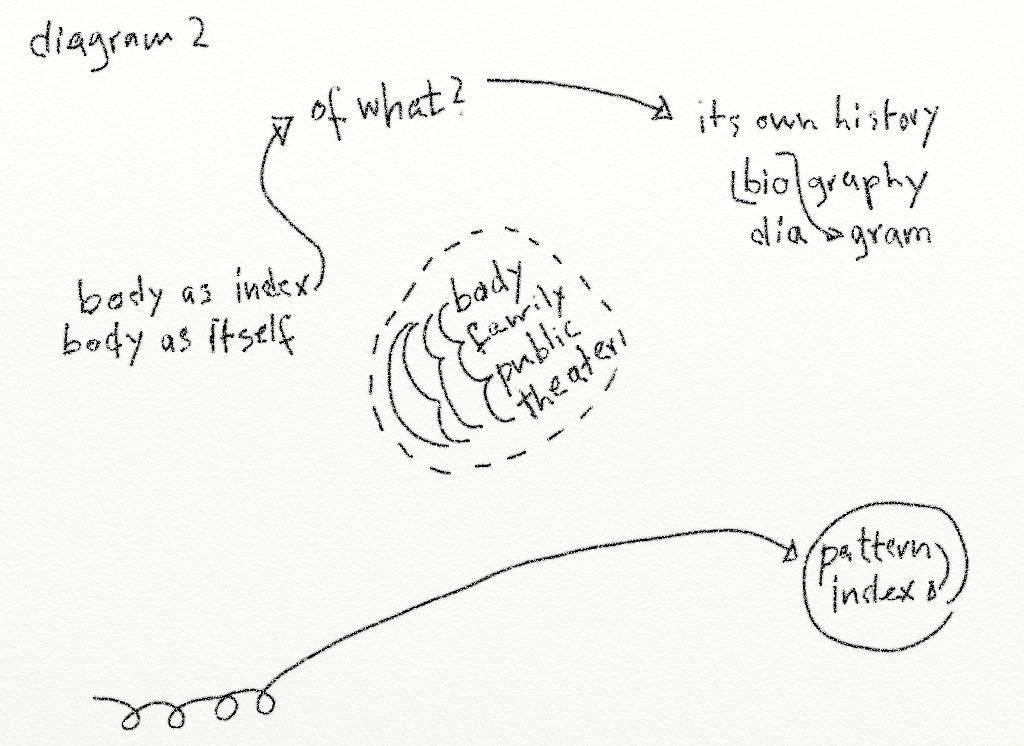 diagram 2
of what?
its own history
[bio]graphy
dia gram
body as index
body as itself
body
family
public
theater
pattern
index